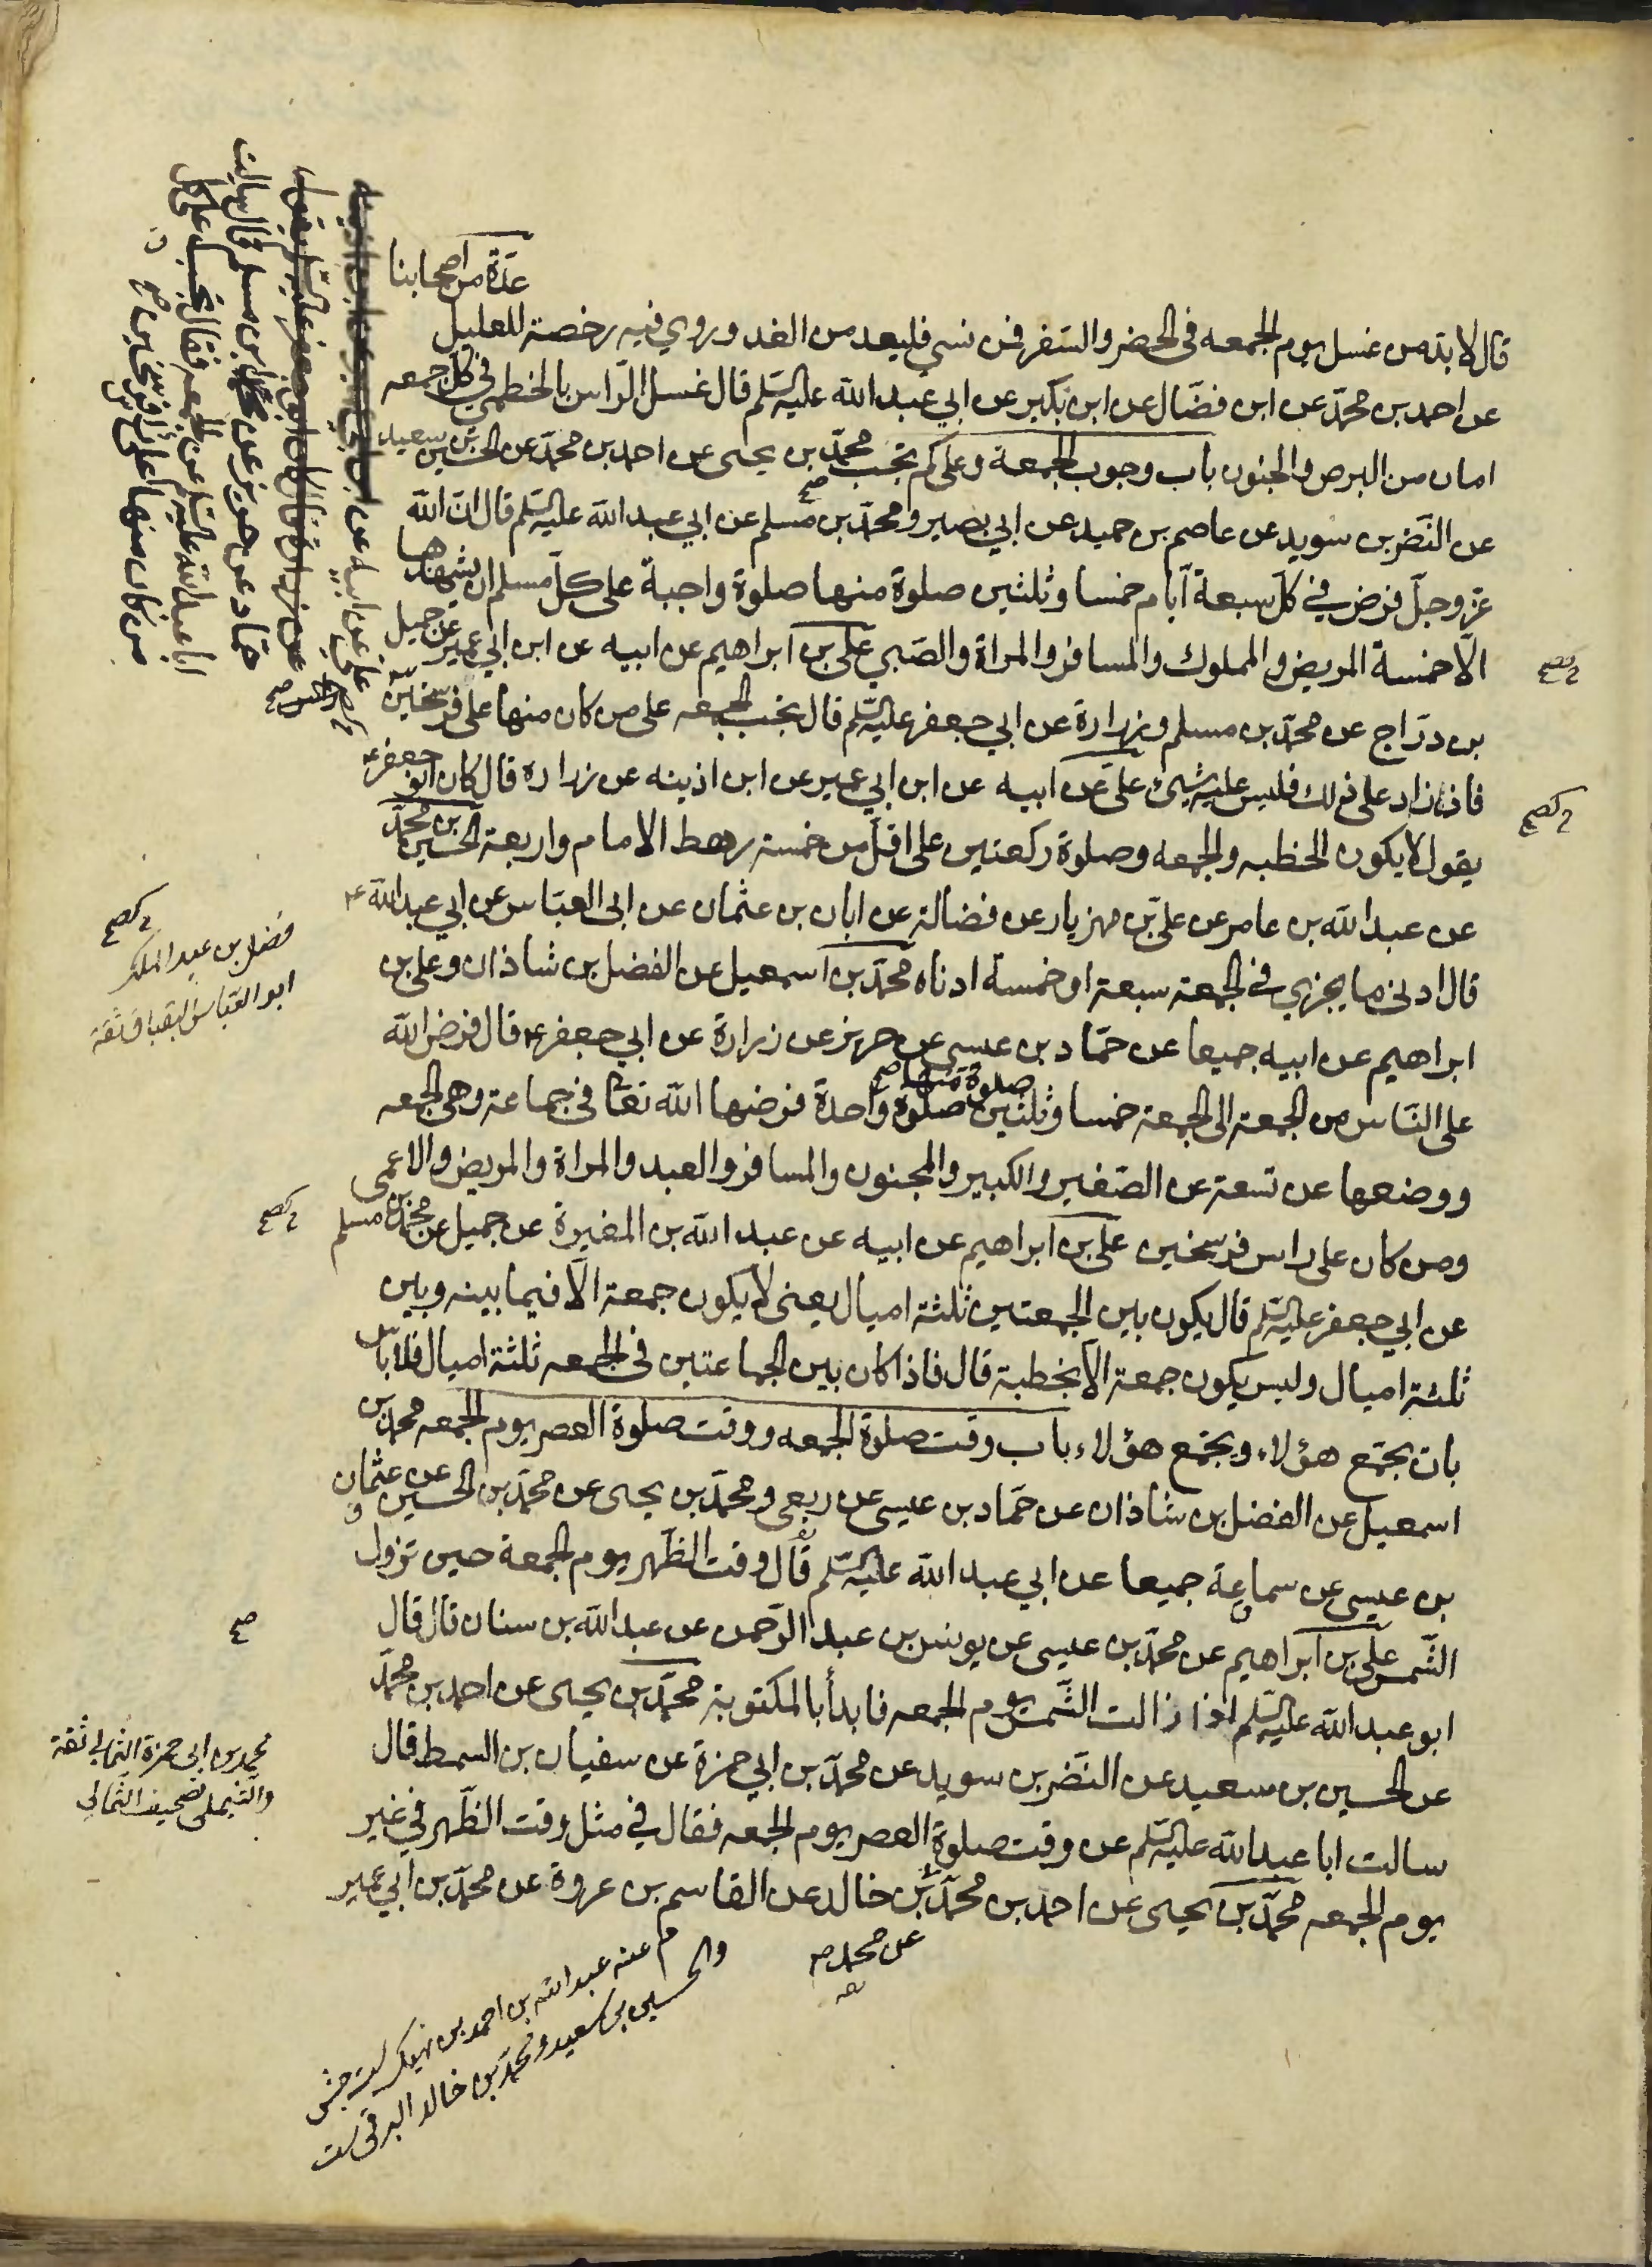 عدة من اصحابنا
قال لا بد من غسل يوم الجمعه فى الحضر والسفر فمن نسي فليعد من الغد وروي فيه رخصة للعليل
عن احمد بن محمد عن ابن فضال عن ابن بكير عن ابي عبد الله عليه السلم قال غسل الراس بالخطمي في كل جمعه
امان من البرص والجنون باب وجوب الجمعة وعلى كم تجب محمد بن يحيى عن احمد بن محمد عن الحسين بن سعيد
عن النضر بن سويد عن عاصم بن حميد عن ابي بصير ومحمد بن مسلم عن ابي عبد الله عليه السلم قال ان الله
عز وجل فرض في كل سبعة ايام خمسا وثلثين صلوة منها صلوة واجبة على كل مسلم ان يشهدها
الا خمسة المريض والمملوك والمسافر والمراة والصبي على بن ابراهيم عن ابيه عن ابن ابي عمير عن جميل
بن دراج عن محمد بن مسلم وزرارة عن ابي جعفر عليه السلم قال تجب الجمعه على من كان منها على فرسخين
فاذا زاد على ذلك فليس عليه شيئ على عن ابيه عن ابن ابي عمير عن ابن اذينه عن زراره قال كان ابو جعفر ع
يقول لا يكون الخطبه والجمعه وصلوة ركعتين على اقل من خمسة رهط الامام واربعة الحسين بن محمد
عن عبد الله بن عامر عن على بن مهزيار عن فضالة عن ابان بن عثمان عن ابى العباس عن ابي عبد الله ع
قال ادنى ما يجزي في الجمعة سبعة او خمسة ادناه محمد بن اسمعيل عن الفضل بن شاذان وعلى بن
ابراهيم عن ابيه جميعا عن حماد بن عيسى عن حريز عن زرارة عن ابي جعفر ع قال فرض الله
صلوة منها صح
على الناس من الجمعة الى الجمعة خمسا وثلثين صلوة واحدة فرضها الله تعا فى جماعة وهى الجمعه
ووضعها عن تسعة عن الصغير والكبير والمجنون والمسافر والعبد والمراة والمريض والاعمى
ومن كان على راس فرسخين على بن ابراهيم عن ابيه عن عبد الله بن المغيرة عن جميل عن محمد بن مسلم
عن ابي جعفر عليه السلم قال يكون بين الجمعتين ثلثة اميال يعنى لا يكون جمعة الا فيما بينه وبين
ثلثة اميال وليس يكون جمعة الا بخطبة قال فاذا كان بين الجماعتين فى الجمعه ثلثة اميال فلا باس
بان يجتمع هؤلاء ويجتمع هؤلاء باب وقت صلوة الجمعه ووقت صلوة العصر يوم الجمعه محمد بن
اسمعيل عن الفضل بن شاذان عن حماد بن عيسى عن ربعى ومحمد بن يحيى عن محمد بن الحسين عن عثمان
بن عيسى عن سماعة جميعا عن ابي عبد الله عليه السلم قال وقت الظهر يوم الجمعة حين تزول
الشمس على بن ابراهيم عن محمد بن عيسى عن يونس بن عبد الرحمن عن عبد الله بن سنان قال قال
ابو عبد الله عليه السلم اذا زالت الشمس يوم الجمعه فابدأ بالمكتوبة محمد بن يحيى عن احمد بن محمد
عن الحسين بن سعيد عن النضر بن سويد عن محمد بن ابي حمزة عن سفيان بن السمط قال
سالت ابا عبد الله عليه السلم عن وقت صلوة العصر يوم الجمعه فقال في مثل وقت الظهر في غير
يوم الجمعه محمد بن يحيى عن احمد بن محمد بن خالد عن القاسم بن عروة عن محمد بن ابي عمير
عن محمد
عنه عبد الله بن احمد بن نهيك
والحسين بن سعيد ومحمد بن خالد البرقى
على عن ابيه عن
حماد عن حريز عن محمد بن مسلم قال سالت
ابا عبد الله عليه السلم عن الجمعه فقال تجب على كل
من كان منها على راس فرسخين
فضل بن عبد الملك
ابو العباس البقباق ثقة
صح
محمد بن ابى حمزة الثمالي ثقة
والتيملى تصحيف الثمالي